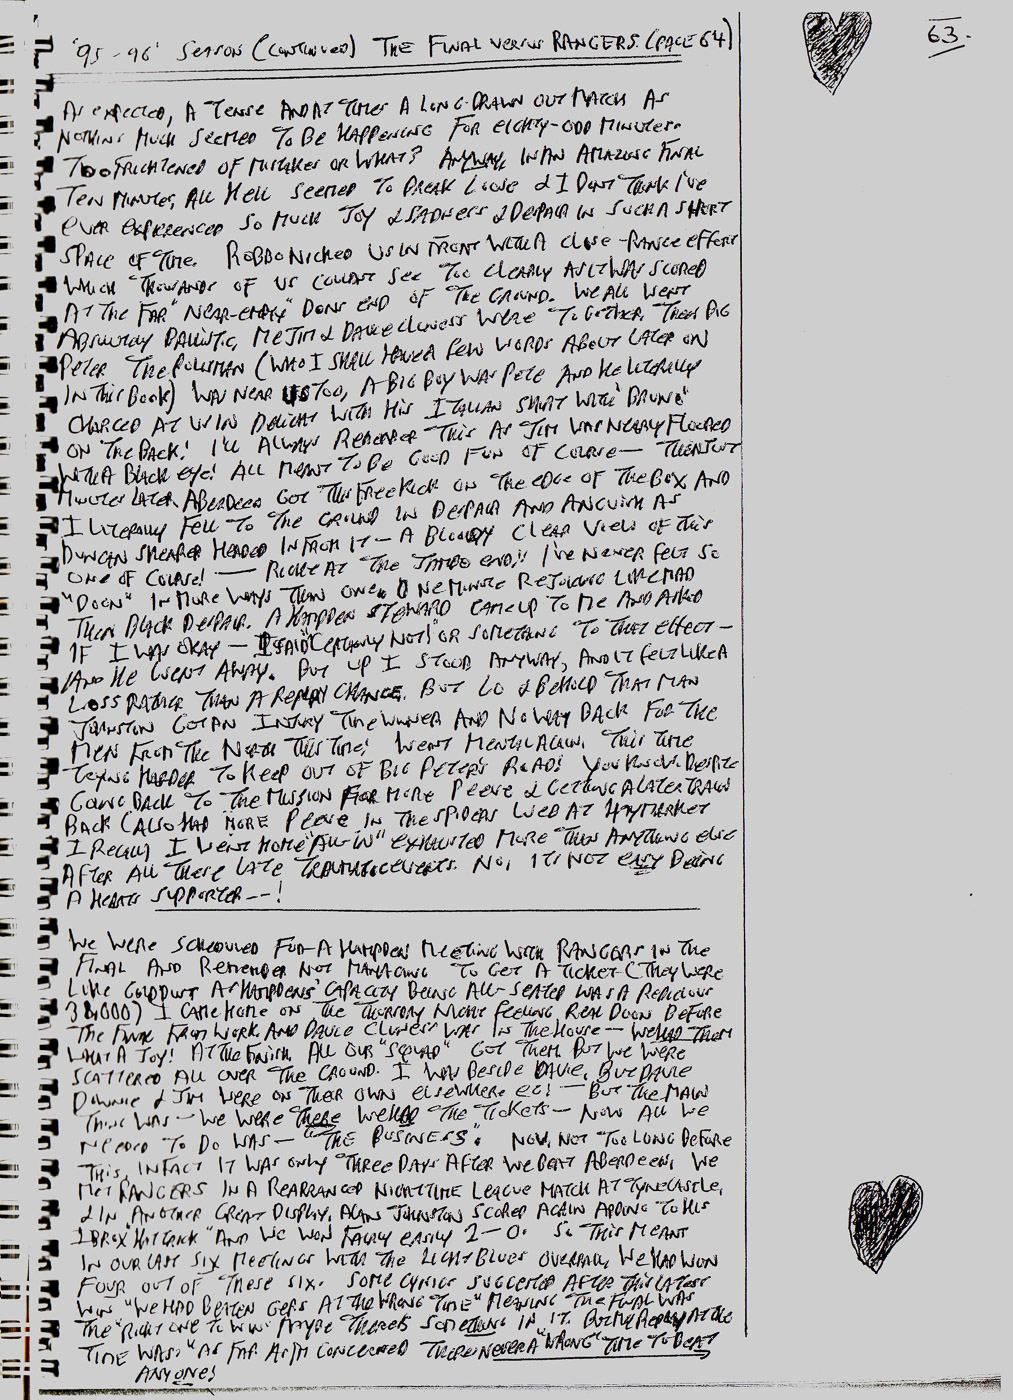 63.
'95-96' SEASON (CONTINUED) THE FINAL VERSUS RANGERS. (PAGE 64)
AS EXPECTED, A TENSE AND AT TIMES A LONG-DRAWN OUT MATCH AS
NOTHING MUCH SEEMED TO BE HAPPENING FOR EIGHTY-ODD MINUTES.
TOO FRIGHTENED OF MISTAKES OR WHAT? ANYWAY, IN AN AMAZING FINAL
TEN MINUTES, ALL HELL SEEMED TO BREAK LOOSE & I DON'T THINK I'VE
EVER EXPERIENCED SO MUCH JOY & SADNESS & DESPAIR IN SUCH A SHORT
SPACE OF TIME. ROBBO NICKED US IN FRONT WITH A CLOSE-RANGE EFFORT
WHICH THOUSANDS OF US COULDN'T SEE TOO CLEARLY AS IT WAS SCORED
AT THE FAR "NEAR-EMPTY" DONS END OF THE GROUND. WE ALL WENT
ABSOLUTELY BALLISTIC, ME JIM & DAVIE CLUNESS WERE TOGETHER, THEN BIG
PETER THE POLISMAN (WHO I SHALL HAVE A FEW WORDS ABOUT LATER ON
IN THIS BOOK) WAS NEAR US TOO, A BIG BOY WAS PETE AND HE LITERALLY
CHARGED AT US IN DELIGHT WITH HIS ITALIAN SHIRT WITH "BRUNO"
ON THE BACK! I'LL ALWAYS REMEMBER THIS AS JIM WAS NEARLY FLOORED
WITH A BLACK EYE! ALL MEANT TO BE GOOD FUN OF COURSE — THEN JUST
MINUTES LATER, ABERDEEN GOT THIS FREE KICK ON THE EDGE OF THE BOX, AND
I LITERALLY FELL TO THE GROUND IN DESPAIR AND ANGUISH AS
DUNCAN SHEARER HEADED IN FROM IT — A BLOODY CLEAR VIEW OF THIS
ONE OF COURSE! — RIGHT AT THE JAMBO END!! I'VE NEVER FELT SO
"DOON" IN MORE WAYS THAN ONE. ONE MINUTE REJOICING LIKE MAD
THEN BLACK DESPAIR. A HAMPDEN STEWARD CAME UP TO ME AND ASKED
IF I WAS OKAY — I SAID "CERTAINLY NOT!" OR SOMETHING TO THAT EFFECT —
AND HE WENT AWAY. BUT UP I STOOD ANYWAY, AND IT FELT LIKE A
LOSS RATHER THAN A REPLAY CHANCE. BUT LO & BEHOLD THAT MAN
JOHNSTON GOT AN INJURY TIME WINNER AND NO WAY BACK FOR THE
MEN FROM THE NORTH THIS TIME! WENT MENTAL AGAIN. THIS TIME
TRYING HARDER TO KEEP OUT OF BIG PETER'S ROAD! YOU KNOW. DESPITE
GOING BACK TO THE MISSION FOR MORE PEEVE & GETTING A LATER TRAIN
BACK (ALSO HAD MORE PEEVE IN THE SPIDERS WEB AT HAYMARKET
I RECALL) I WENT HOME "ALL-IN" EXHAUSTED MORE THAN ANYTHING ELSE
AFTER ALL THESE LATE TRAUMATIC EVENTS. NO, IT'S NOT EASY BEING
A HEARTS SUPPORTER --!
WE WERE SCHEDULED FOR A HAMPDEN MEETING WITH RANGERS IN THE
FINAL AND REMEMBER NOT MANAGING TO GET A TICKET (THEY WERE
LIKE GOLDDUST AS HAMPDENS' CAPACITY BEING ALL-SEATED WAS A
38,000) I CAME HOME ON THE THURSDAY NIGHT FEELING REAL DOON BEFORE
THE FINAL FROM WORK AND DAVIE CLUNESS WAS IN THE HOUSE — WE HAD THEM
WHAT A JOY! AT THE FINISH ALL OUR "SQUAD" GOT THEM BUT WE WERE
SCATTERED ALL OVER THE GROUND. I WAS BESIDE DAVIE, BUT DAVIE
DOWNIE & JIM WERE ON THEIR OWN ELSEWHERE — BUT THE MAIN
THING WAS — WE WERE THERE WE HAD THE TICKETS — NOW ALL WE
NEEDED TO DO WAS — "THE BUSINESS". NOW, NOT TOO LONG BEFORE
THIS, IN FACT IT WAS ONLY THREE DAYS AFTER WE BEAT ABERDEEN, WE
MET RANGERS IN A REARRANGED NIGHTTIME LEAGUE MATCH AT TYNECASTLE,
& IN ANOTHER GREAT DISPLAY, ALAN JOHNSTON SCORED AGAIN ADDING TO HIS
IBROX "HATTRICK" AND WE WON FAIRLY EASILY 2-0. SO THIS MEANT
IN OUR LAST SIX MEETINGS WITH THE LIGHT BLUES OVERALL, WE HAD WON
FOUR OUT OF THESE SIX. SOME CYNICS SUGGESTED AFTER THIS LATEST
WIN "WE HAD BEATEN GERS AT THE WRONG TIME" MEANING THE FINAL WAS
THE "RIGHT ONE TO WIN" MAYBE THERE'S SOMETHING IN IT. BUT MY REPLY AT THE
TIME WAS: "AS FAR AS I'M CONCERNED THERE'S NEVER A "WRONG" TIME TO BEAT
ANYONE!